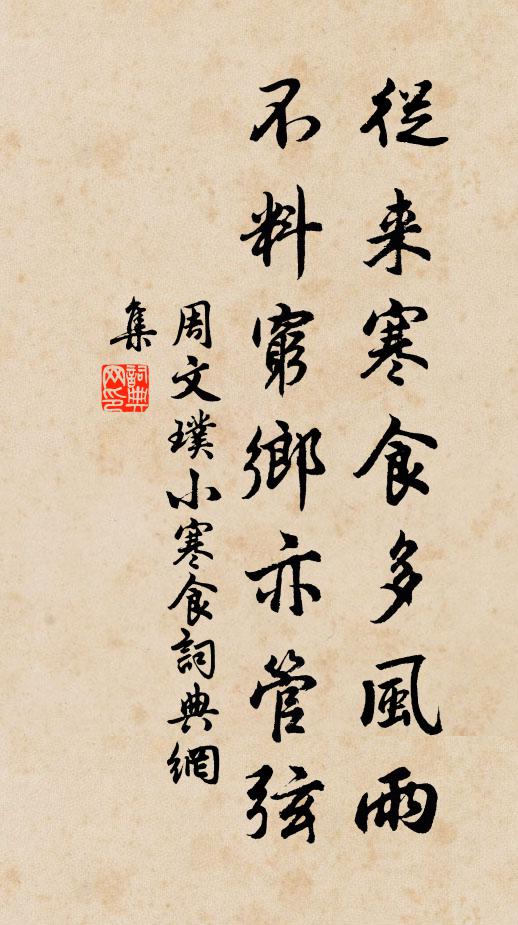 從来寒食多風雨
不料窮鄉亦管弦
周文璞小寒食詞典網
集
詞典
网印